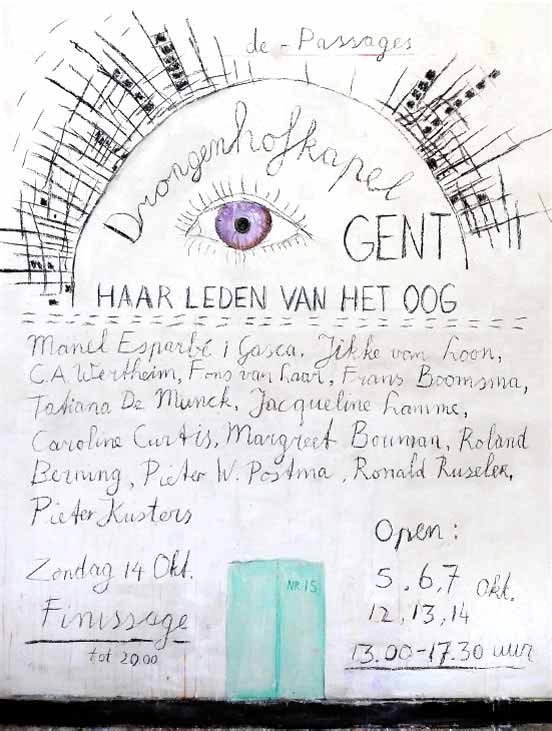 de - Passages
Drongenhofkapel
GENT
HAAR LEDEN VAN HET OOG
Manel Esparbé i Gasca, Jikke van Loon,
C.A. Wertheim, Fons van Laar, Frans Boomsma,
Tatiana De Munck, Jacqueline Lamme,
Caroline Curtis, Margreet Bouman, Roland
Berning, Pieter W. Postma, Ronald Ruseler,
Pieter Kusters
Zondag 14 Okt.
Finissage
tot 20.00
NR 15
Open:
5, 6, 7 Okt.
12, 13, 14
13.00-17.30 uur